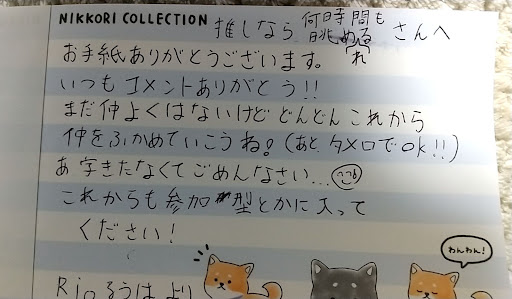 NIKKORI COLLECTION 推しなら何時間も眺めれる さんへ
お手紙ありがとうございます。
いつもコメントありがとう!!
まだ仲よくはないけど どんどんこれから
仲をふかめていこうね!(あと、タメ口でok!!)
あ 字きたなくてごめんなさい…
これからも参加型とかに入って
ください!
わんわん!
Rio るうは より